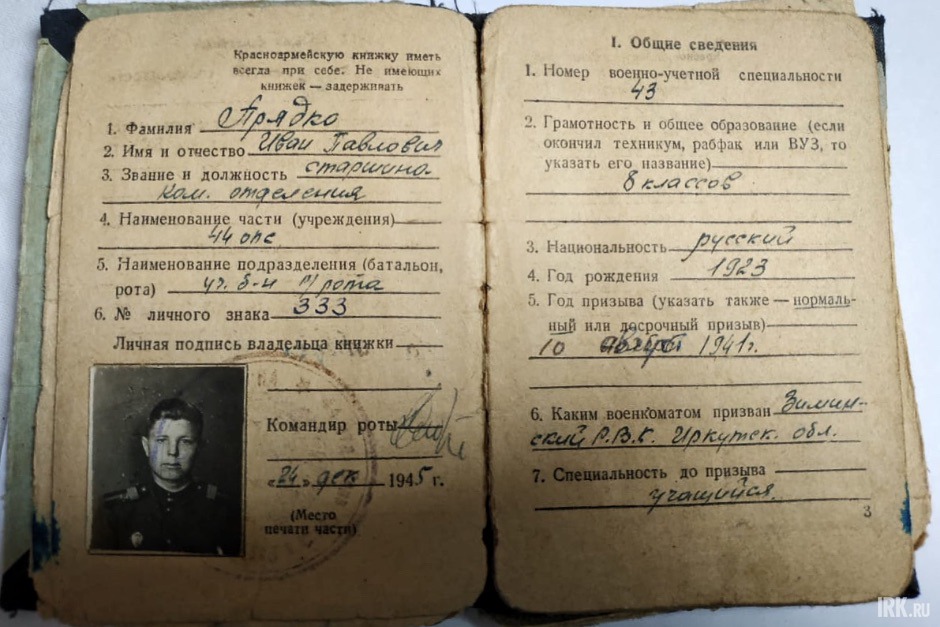 Красноармейскую книжку иметь
всегда при себе. Не имеющих
книжек — задерживать
1. Фамилия Прядко
2. Имя и отчество Иван Павлович
3. Звание и должность старшина
ком. отделения
4. Наименование части (учреждения)
44 опс
5. Наименование подразделения (батальон,
рота) уч. б-н рота
6. № личного знака 333
Личная подпись владельца книжки
Командир роты
«24» дек 1945 г.
(Место
печати части)
I. Общие сведения
1. Номер военно-учетной специальности
43
2. Грамотность и общее образование (если
окончил техникум, рабфак или ВУЗ, то
указать его название)
8 классов
3. Национальность русский
4. Год рождения 1923
5. Год призыва (указать также — нормаль-
ный или досрочный призыв)
10 1941 г.
6. Каким военкоматом призван Зимин-
ский Р.В.К. Иркутск. обл.
7. Специальность до призыва
учащийся.
3
IRK.RU